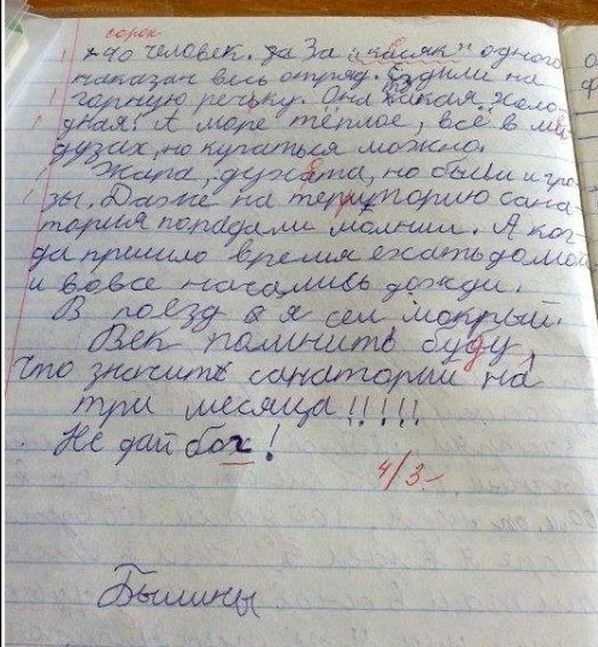 сорок
40 человек. За "касяк" одного
наказан весь отряд. Ездили на
горную речьку. Она такая холо-
дная! А море тёплое, всё в ме-
дузах, но купаться можно.
Жара, духата, но были и гро-
зы. Даже на територию сана-
тория попадали молнии. А ког-
да пришло время ехать домой
и вовсе начались дожди.
В поезд я сел мокрый.
Век помнить буду,
что значить санаторий на
три месяца!!!!!
Не дай бох!
4/3-
Былины